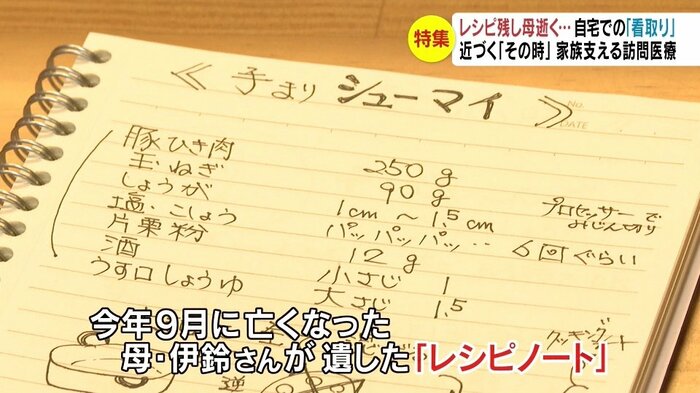 特集
レシピ残し母逝く… 自宅での「看取り」
近づく「その時」 家族支える訪問医療
≪手まり シューマイ≫
No.
DATE
豚ひき肉 250g
玉ねぎ 90g
しょうが 1cm〜1.5cm プロセッサーでみじん切り
塩・こしょう パッパッパッ… 6回ぐらい
片栗粉 12g
酒 小さじ 1
うす口しょうゆ 大さじ 1.5
クッキング
今年9月に亡くなった
母・伊鈴さんが 遺した「レシピノート」
逆